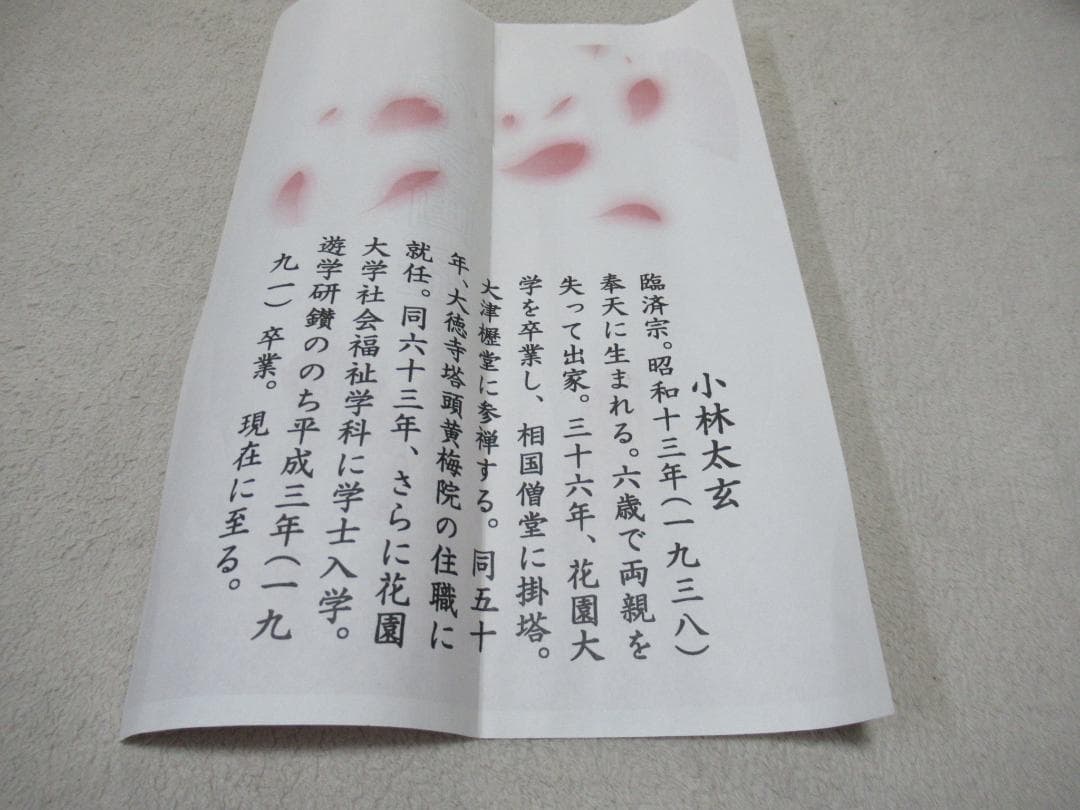 小林太玄
臨済宗。昭和十三年(一九三八)
奉天に生まれる。六歳で両親を
失って出家。三十六年、花園大
学を卒業し、相国僧堂に掛塔。
大津櫪堂に参禅する。同五十
年、大徳寺塔頭黄梅院の住職に
就任。同六十三年、さらに花園
大学社会福祉学科に学士入学。
遊学研鑽ののち平成三年(一九
九一)卒業。現在に至る。